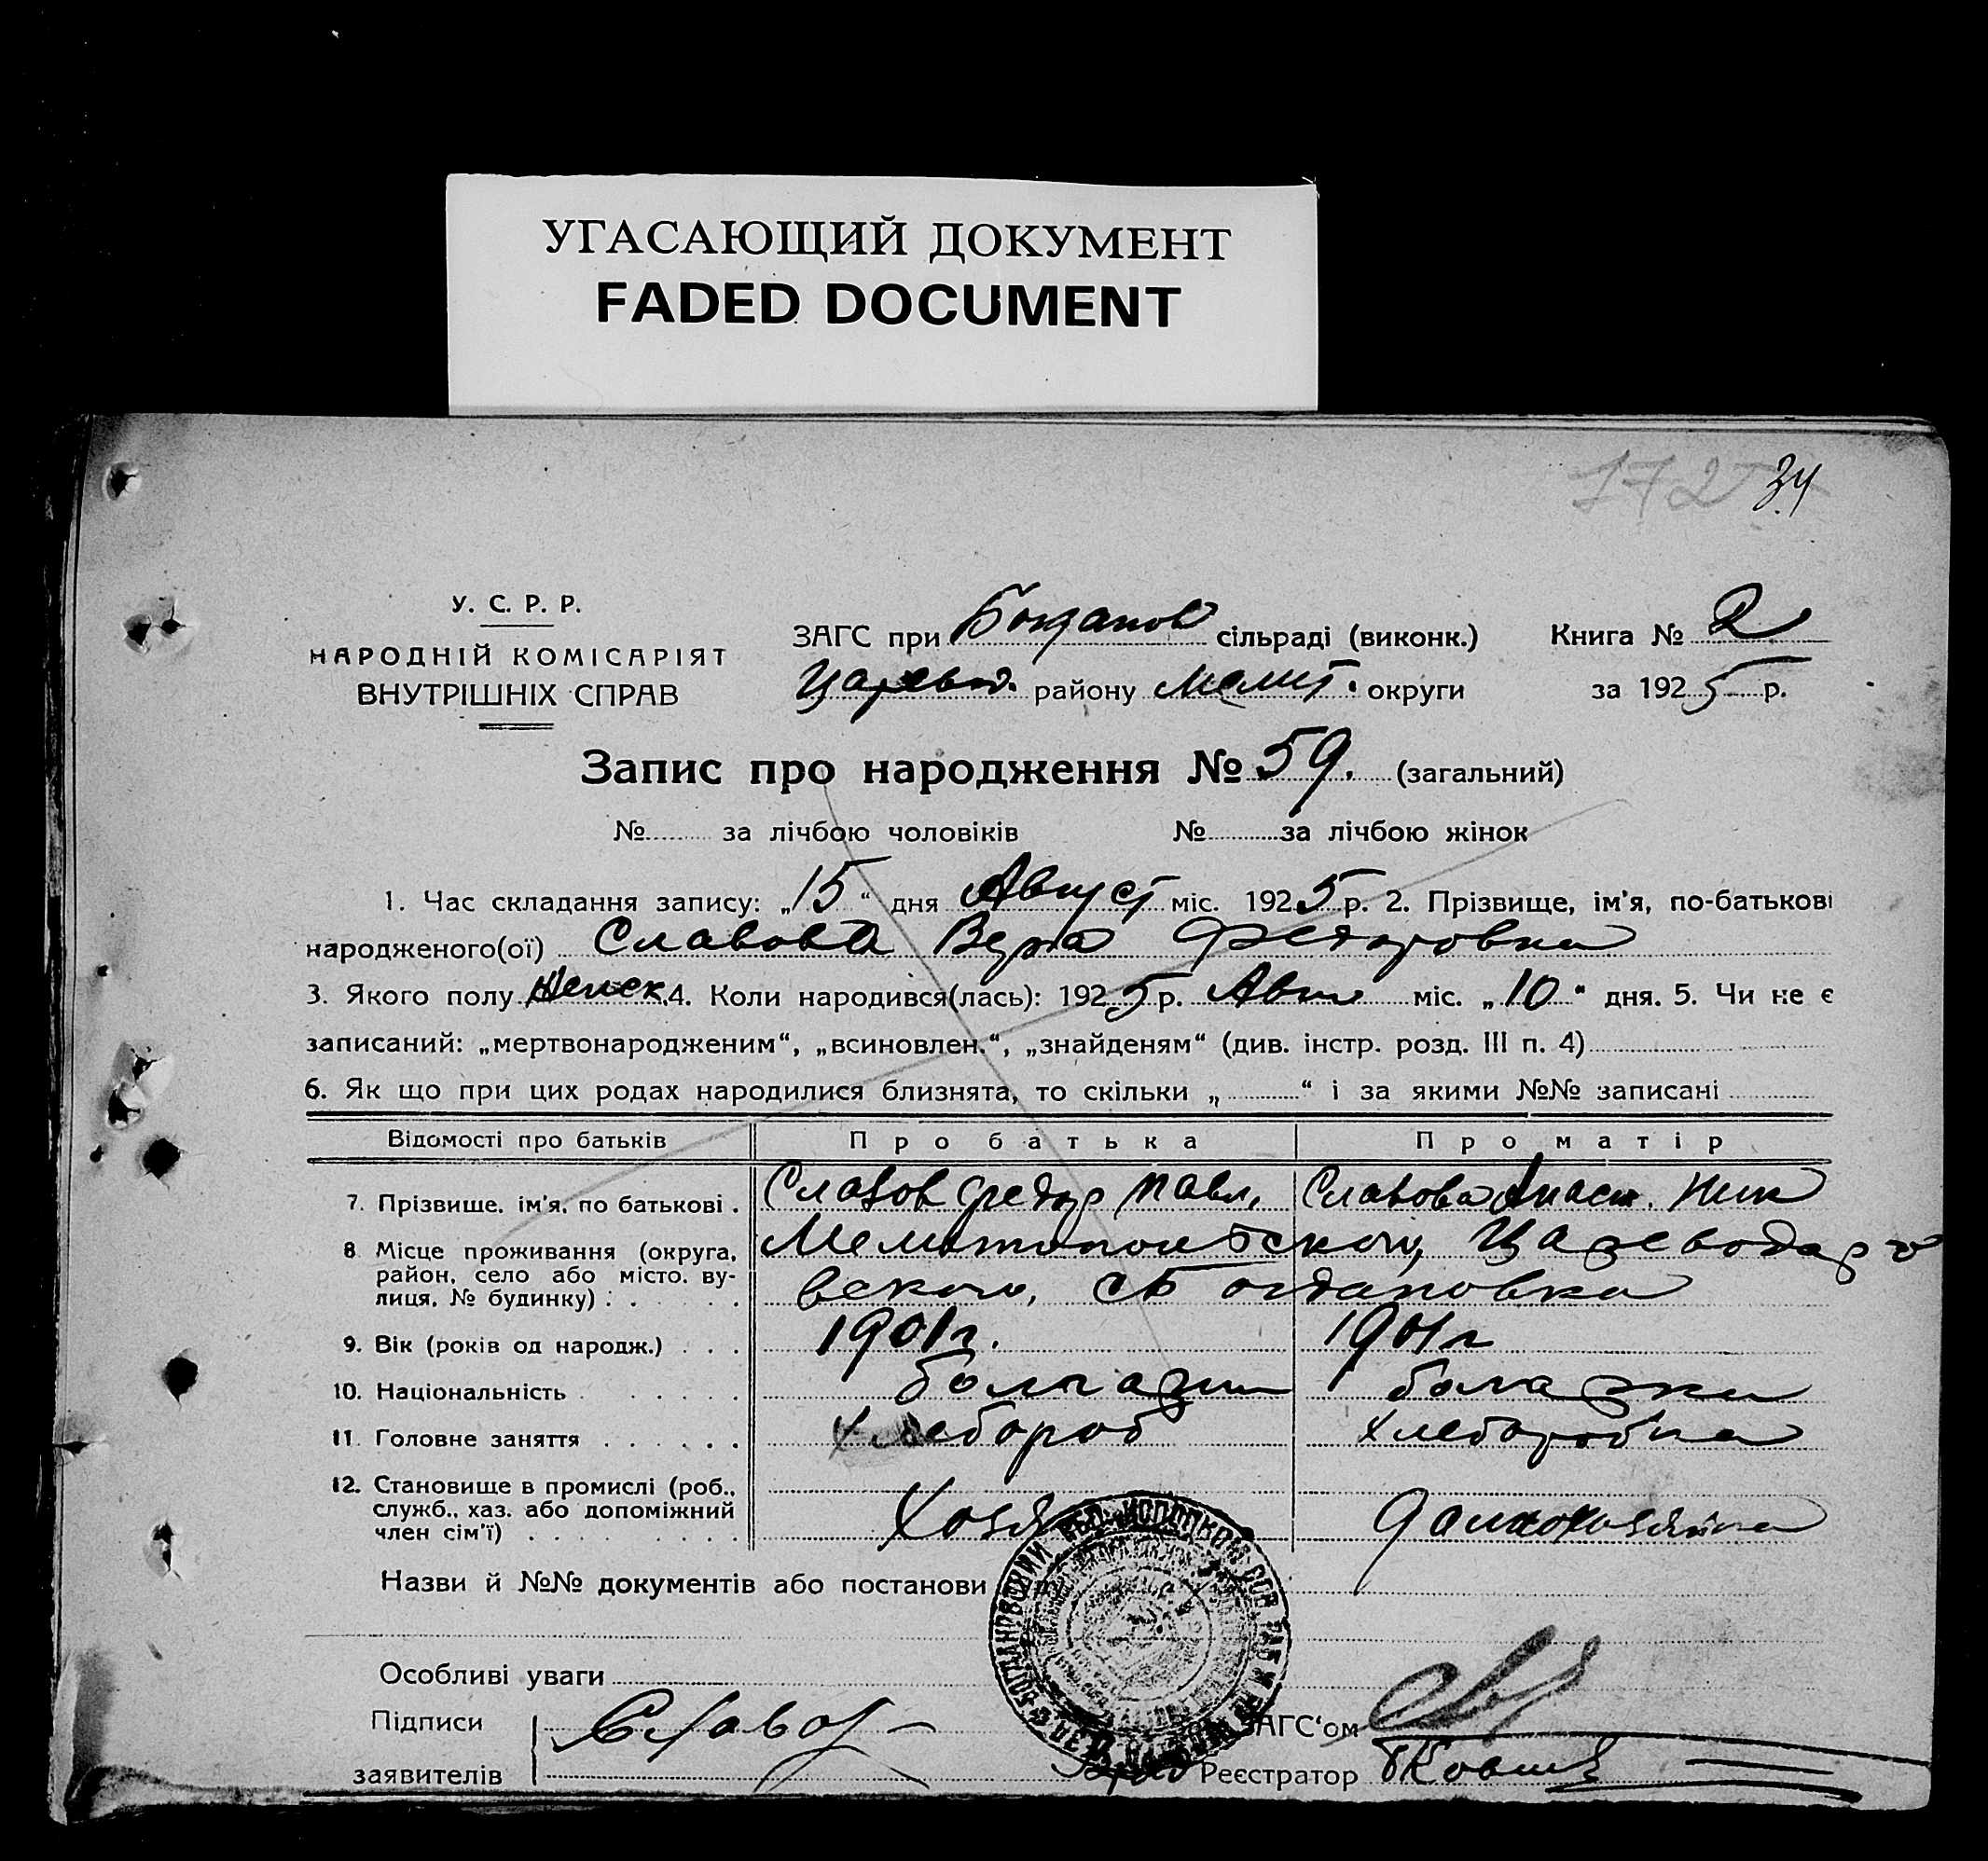 УГАСАЮЩИЙ ДОКУМЕНТ
FADED DOCUMENT
172 34
У. С. Р. Р.
НАРОДНІЙ КОМІСАРІЯТ
ВНУТРІШНІХ СПРАВ
ЗАГС при Богданов сільраді (виконк.) Книга № 2
Царевод. району Мелит. округи за 1925 р.
Запис про народження № 59. (загальний)
№ за лічбою чоловіків № за лічбою жінок
1. Час складання запису: „15“ дня Август міс. 1925 р. 2. Прізвище, ім'я, по-батькові
народженого(ої) Славова Вера Федоровна
3. Якого полу Женск. 4. Коли народився(лась): 1925 р. Авг міс. „10“ дня. 5. Чи не є
записаний: „мертвонародженим“, „всиновлен.“, „знайденям“ (див. інстр. розд. III п. 4)
6. Як що при цих родах народилися близнята, то скільки „ “ і за якими №№ записані
Відомості про батьків Про батька Про матір
7. Прізвище, ім'я, по батькові . Славов Федор Павл. Славова Анаст. Ник
8 Місце проживання (округа, район, село або місто, ву-лиця, № будинку) : Мелитопольского, Цареводаро
вского, с Богдановка
9. Вік (років од народж.) . . . 1901 г. 1901 г
10. Національність болгарин болгарка
11. Головне заняття хлебороб хлеборобка
12. Становище в промислі (роб., служб., хаз. або допоміжний член сім'ї) Хозя домохозяйка
Назви й №№ документів або постанови
Особливі уваги
Підписи Славов
заявителів
ЗАГС'ом
Реєстратор